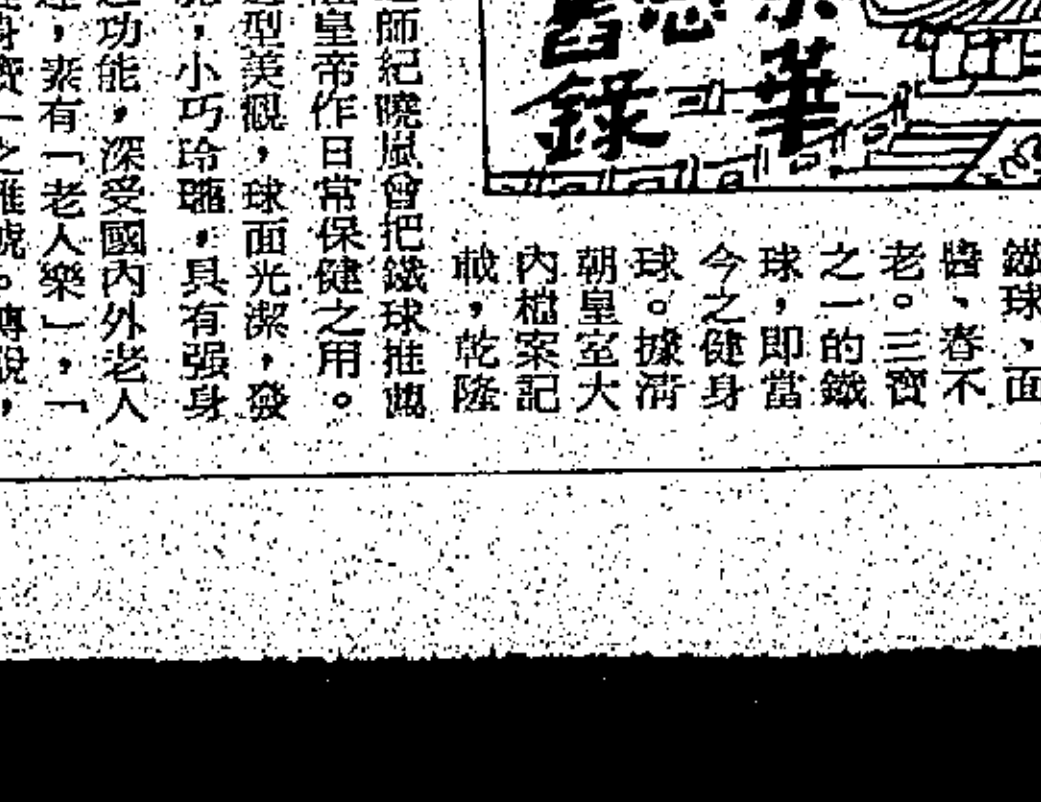 京華
憶舊錄
鐵球，面
醬、春不
老。三寶
之一的鐵
球，即當
今之健身
球。據清
朝皇室大
內檔案記
載，乾隆
師紀曉嵐曾把鐵球推薦
皇帝作日常保健之用。
型美觀，球面光潔，發
，小巧玲瓏，具有强身
功能，深受國內外老人
，素有「老人樂」，「
身寶」之雅號。傳說，